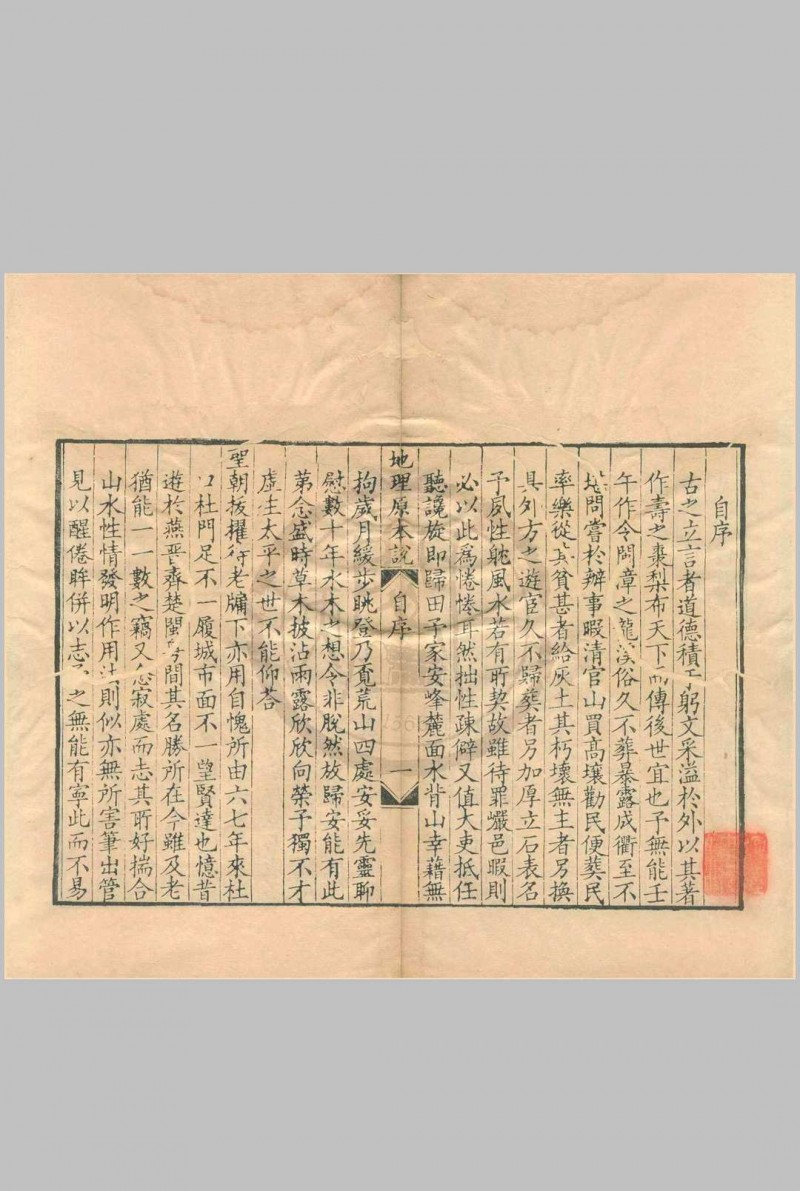 自序
古之立言者道德積于躬文采溢於外以其著
作壽之棗梨布天下而傳後世宜也予無能壬
午作令閩漳之龍溪俗久不葬暴露成衢至不
堪問嘗於辦事暇清官山買高壤勸民便葬民
率樂從其貧甚者給灰土其朽壞無主者另換
具外方之遊官久不歸葬者另加厚立石表名
予夙性躭風水若有所契故雖待罪巖邑暇則
必以此為惓惓耳然拙性疎僻又值大吏抵任
聽讒旋即歸田予家安峰麓面水背山幸藉無
地理原本說 自序 一
拘歲月緩步眺登乃覓荒山四處安妥先靈聊
慰數十年水木之想令非脫然放歸安能有此
第念盛時草木披沾雨露欣欣向榮予獨不才
虛生太平之世不能仰答
聖朝拔擢行老牖下亦用自愧所由六七年來杜
杜門足不一履城市面不一望賢達也憶昔
遊於燕晉齊楚閩間其名勝所在今雖及老
猶能一一數之竊又念寂處而志其所好揣合
山水性情發明作用法則似亦無所害筆出管
見以醒倦眸併以志之無能有寧此而不易